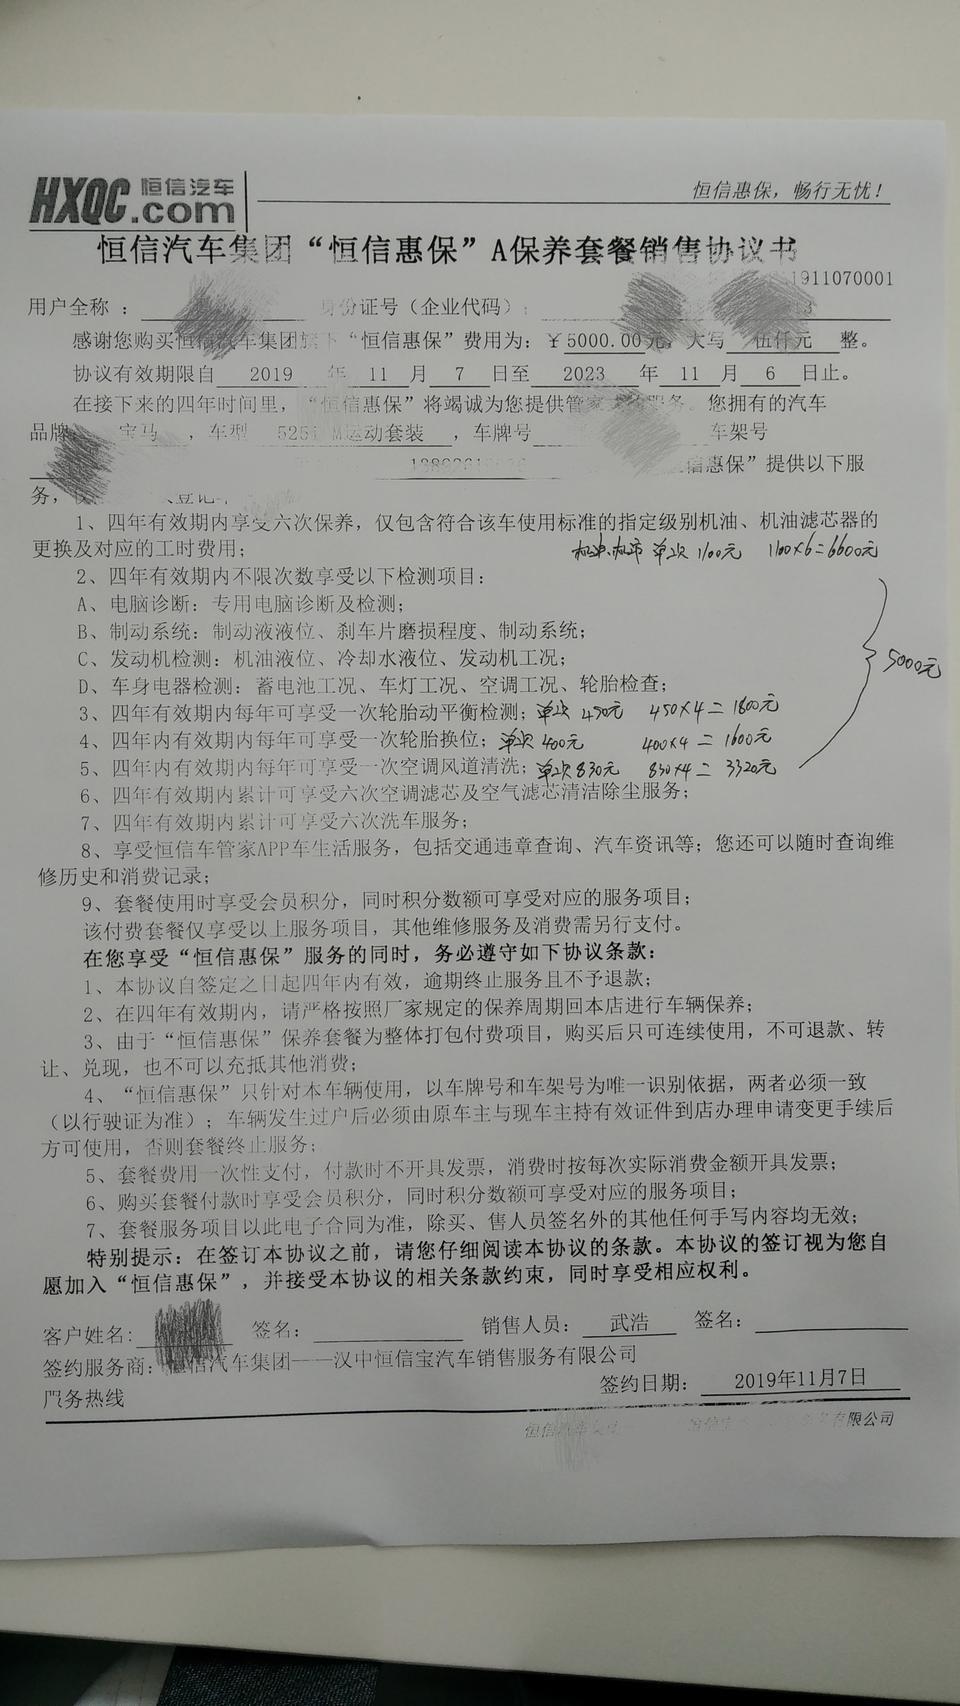 HXQC 恒信汽车
.com
恒信惠保，畅行无忧！
恒信汽车集团“恒信惠保”A保养套餐销售协议书
1911070001
用户全称 ： 身份证号（企业代码）：
感谢您购买恒信汽车集团旗下“恒信惠保”费用为：￥5000.00元，大写 伍仟元 整。
协议有效期限自 2019 年 11 月 7 日至 2023 年 11 月 6 日止。
在接下来的四年时间里，“恒信惠保”将竭诚为您提供管家式服务。您拥有的汽车
品牌： 宝马 ，车型 525i M运动套装 ，车牌号 车架号
“恒信惠保”提供以下服
务，
1、四年有效期内享受六次保养，仅包含符合该车使用标准的指定级别机油、机油滤芯器的
更换及对应的工时费用； 机油、机滤 单次 1100元 1100×6=6600元
2、四年有效期内不限次数享受以下检测项目：
A、电脑诊断：专用电脑诊断及检测；
B、制动系统：制动液液位、刹车片磨损程度、制动系统；
C、发动机检测：机油液位、冷却水液位、发动机工况； 5000元
D、车身电器检测：蓄电池工况、车灯工况、空调工况、轮胎检查；
3、四年有效期内每年可享受一次轮胎动平衡检测；单次 450元 450×4=1800元
4、四年内有效期内每年可享受一次轮胎换位；单次 400元 400×4=1600元
5、四年内有效期内每年可享受一次空调风道清洗；单次 830元 830×4=3320元
6、四年内有效期内累计可享受六次空调滤芯及空气滤芯清洁除尘服务；
7、四年内有效期内累计可享受六次洗车服务；
8、享受恒信车管家APP车生活服务，包括交通违章查询、汽车资讯等；您还可以随时查询维
修历史和消费记录；
9、套餐使用时享受会员积分，同时积分数额可享受对应的服务项目；
该付费套餐仅享受以上服务项目，其他维修服务及消费需另行支付。
在您享受“恒信惠保”服务的同时，务必遵守如下协议条款：
1、本协议自签定之日起四年内有效，逾期终止服务且不予退款；
2、在四年有效期内，请严格按照厂家规定的保养周期回本店进行车辆保养；
3、由于“恒信惠保”保养套餐为整体打包付费项目，购买后只可连续使用，不可退款、转
让、兑现，也不可以充抵其他消费；
4、“恒信惠保”只针对本车辆使用，以车牌号和车架号为唯一识别依据，两者必须一致
（以行驶证为准）；车辆发生过户后必须由原车主与现车主持有效证件到店办理申请变更手续后
方可使用，否则套餐终止服务；
5、套餐费用一次性支付，付款时不开具发票，消费时按每次实际消费金额开具发票；
6、购买套餐付款时享受会员积分，同时积分数额可享受对应的服务项目；
7、套餐服务项目以此电子合同为准，除买、售人员签名外的其他任何手写内容均无效；
特别提示：在签订本协议之前，请您仔细阅读本协议的条款。本协议的签订视为您自
愿加入“恒信惠保”，并接受本协议的相关条款约束，同时享受相应权利。
客户姓名： 签名： 销售人员： 武浩 签名：
签约服务商：恒信汽车集团——汉中恒信宝汽车销售服务有限公司
服务热线 签约日期： 2019年11月7日
有限公司